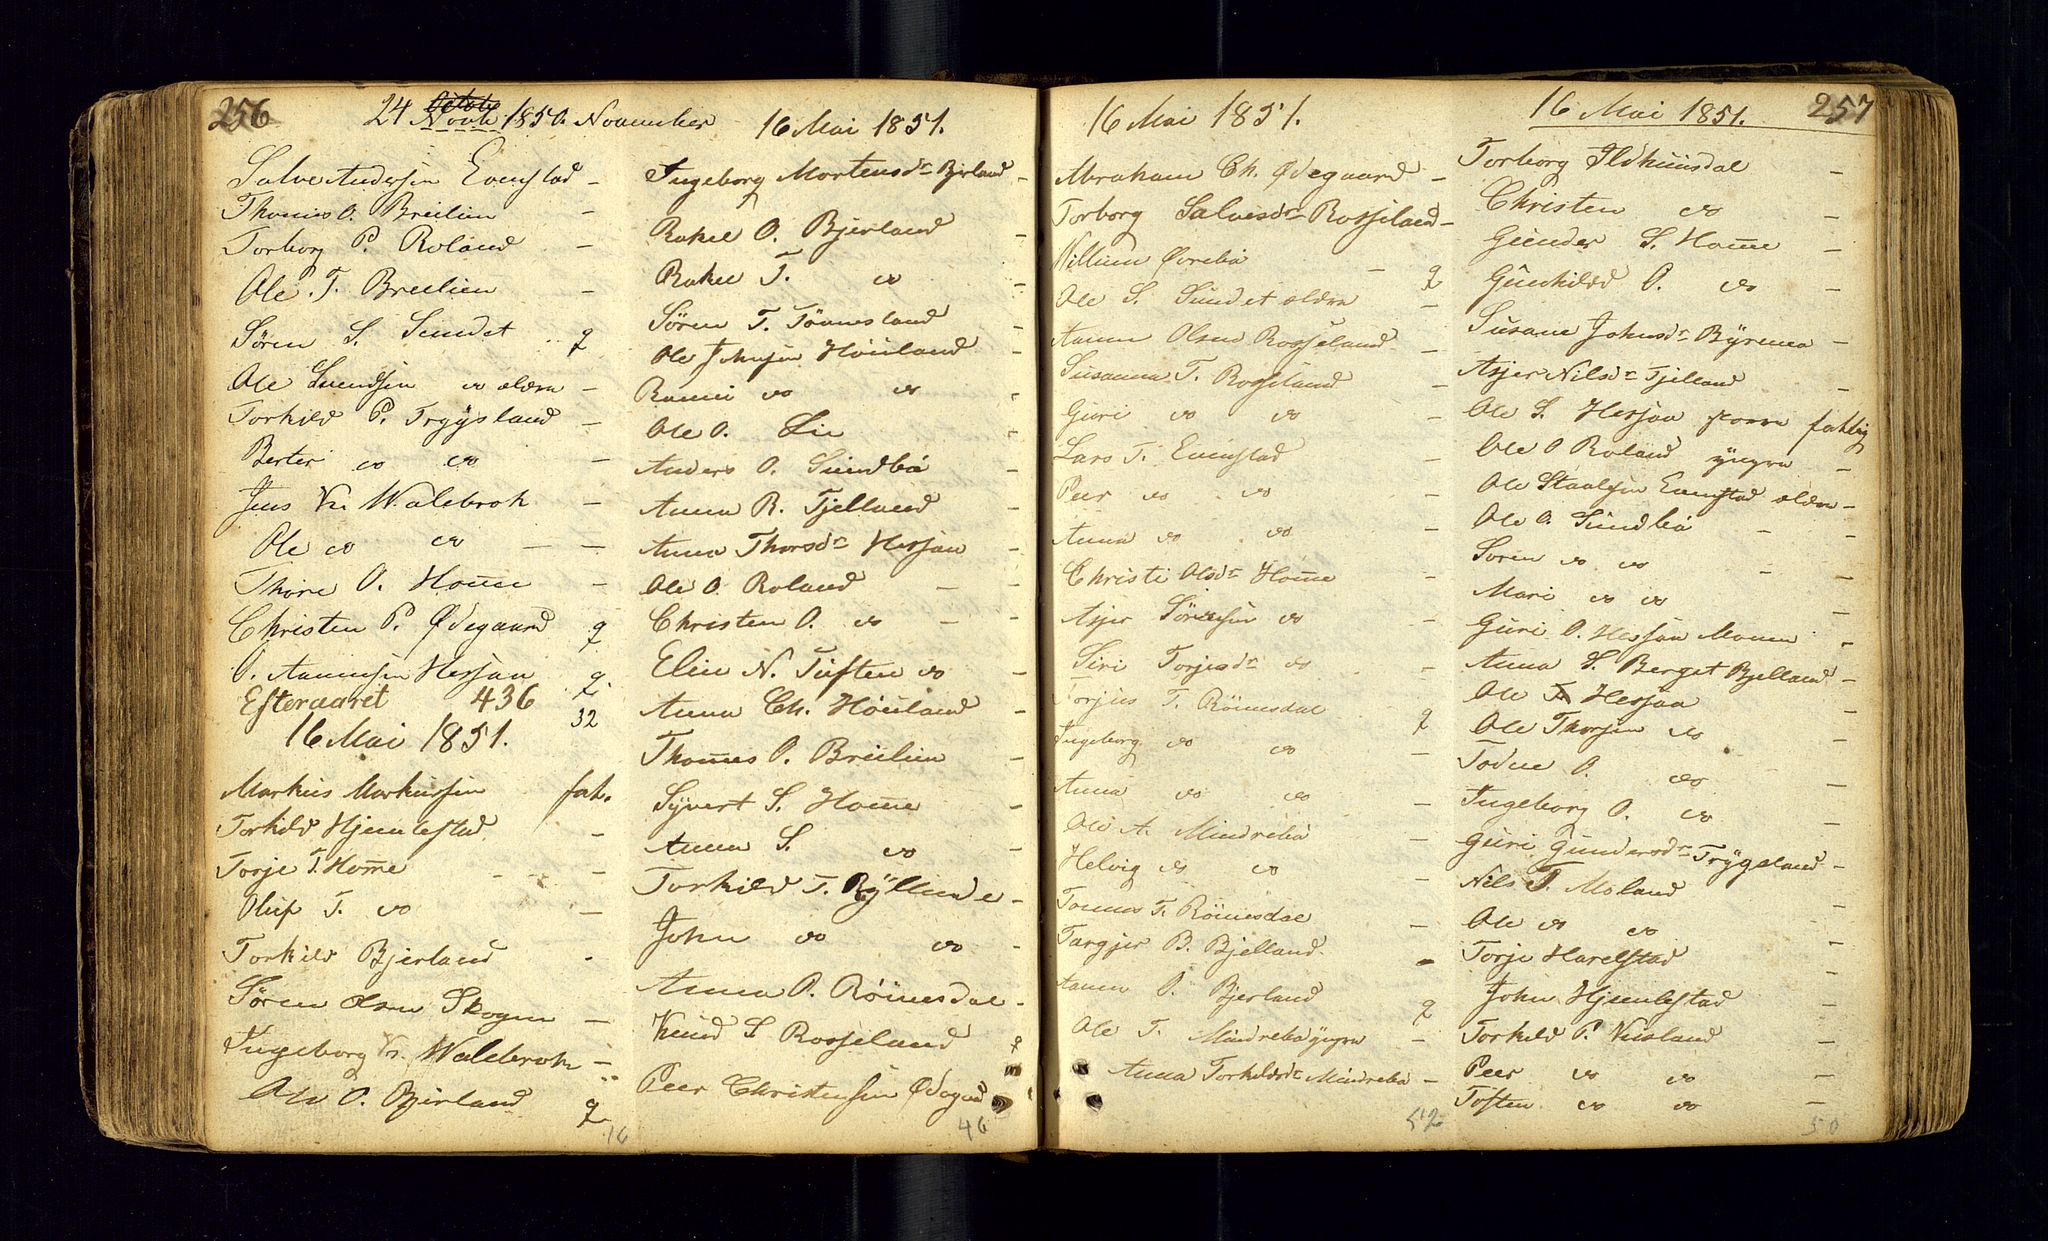 256
24 Octobr Novbr 1850. November
Salve Andersen Evenstad -
Thomas O. Breilien -
Torborg P. Roland -
Ole P. T. Breilien -
Søren S. Sundet q
Ole Svendsen do ældre -
Torkild P. Trygsland -
Berte do do -
Jens Kr. Walebrok -
Ole do do - -
Thore O. Home -
Christen P. Ødegaard q
O. Aanensen Hessaa q
Efteraaret 436 32
16 Mai 1851.
Markus Markussen fat.
Torkild Hjemlestad -
Torje T. Home - -
Oluf T. do -
Torkild Bjerland -
Søren Olsen Skogen -
Ingeborg Kr. Walebrok -
Ole O. Bjerland q
16
16 Mai 1851.
Ingeborg Mortensdr Bjerland -
Rakel O. Bjerland -
Rakel T. do -
Søren T. Tönnesland -
Ole Johnsen Høuland -
do do -
Ole O. Lie -
Anders O. Sundbø -
Anna R. Tjelland -
Anna Thorsdr Hessaa -
Ole O. Roland - -
Christen O. do - -
Elen N. Tuften do -
Anna Ch. Høuland -
Thomes O. Breilien -
Syvert S. Home -
Anna S. do -
Torkild T. -
John do do -
Anna O. Röinesdal -
Knud S Rosseland q
Peer Christensen Ødegrd
46
16 Mai 1851.
Abraham Ch. Ødegaard -
Torborg Salvesdr Rosseland -
Villum Øvrebø - q
Ole S. Sundet ældre -
Aanen Olsen Rosseland -
Susanna T. Rosseland -
Guri do do -
Lars T. Evenstad -
Peer do do -
Anna do do -
Christi Olsdr Home -
Asjer Sörensen do -
Siri Torjesdr do -
Torjus T. Röinesdal q
Ingeborg do do -
Anna do do -
Ole A. Mindrebø -
Helvig do do -
Tomas T. Röinesdal -
Targjer B. Bjelland. -
Aanen O. Bjerland q
Ole T. Mindrebø yngre -
Anna Torkildsdr Mindrebø -
52
16 Mai 1851. 257
Torborg Ildhuusdal -
Christen do -
Gunder S. Home -
Gunhild O. do -
Susane Johnsdr Byremo -
Asjer Nilsdr Tjelland -
Ole S. Hessaa fattig
Ole O Roland yngre -
Ole Staalesen Evenstad ældre -
Ole O. Sundbø - -
Soren do do - -
Mari do do -
Guri O. Hessaa Moen -
Anna S. Berget Bjelland -
Ole T. Hessaa -
Ole Thorsen do -
Todne O. do -
Ingeborg O. do -
Guri Gundersdr Trygsland -
Nils T. Moland -
Ole do do -
Torje Harelstad -
John Hjemlestad -
Torkild P. Viisland -
Peer do do -
Tosten do do -
50